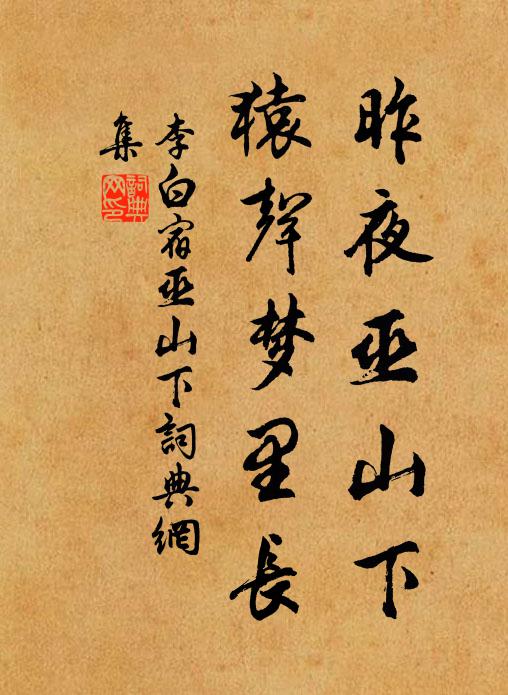 昨夜巫山下
猿聲梦里長
李白宿巫山下詞典網
集
詞典网印